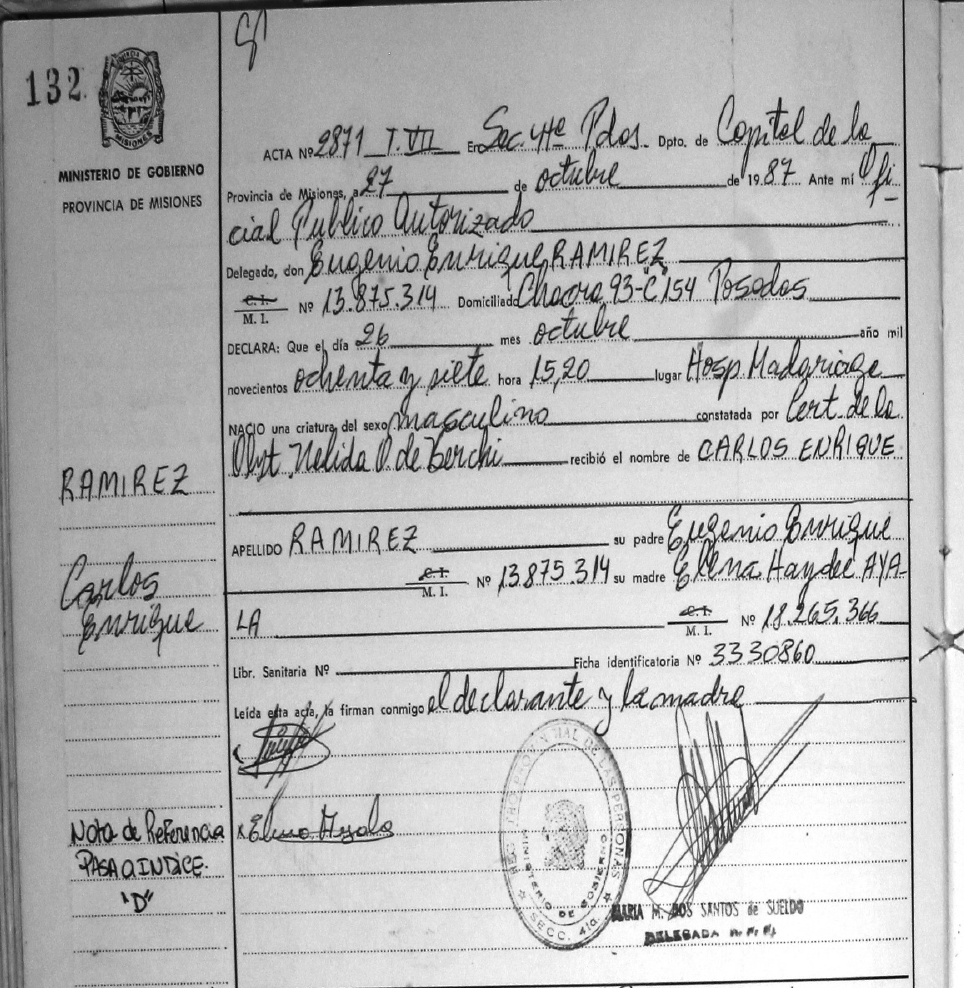 132
MISIONES
MINISTERIO DE GOBIERNO
PROVINCIA DE MISIONES
RAMIREZ
Carlos
Enrique
Nota de Referencia
PASA a INDICE
"D"
ACTA Nº 2871 T. VII En Sec. 4ta Pdas. Dpto. de Capital de la
Provincia de Misiones, a 27 de octubre de 1987 Ante mí Ofi-
cial Publico Autorizado
Delegado, don Eugenio Enrique RAMIREZ
C. I.
M. I. Nº 13.875.314 Domiciliado Chacra 93-"C" 154 Posadas
DECLARA: Que el día 26 mes octubre año mil
novecientos ochenta y siete hora 15,20 lugar Hosp. Madariaga
NACIO una criatura del sexo masculino constatada por Cert. de la
Obst. Nelida O. de Berchi recibió el nombre de CARLOS ENRIQUE
APELLIDO RAMIREZ su padre Eugenio Enrique
C. I.
M. I. Nº 13.875.314 su madre Elena Haydee AYA
LA C. I.
M. I. Nº 18.265.366
Libr. Sanitaria Nº Ficha identificatoria Nº 3330860
Leída esta acta, la firman conmigo el declarante y la madre
x Elena Ayala
MINISTERIO DE GOBIERNO
SECC. 4ta.
MARIA M. DOS SANTOS de SUELDO
DELEGADA